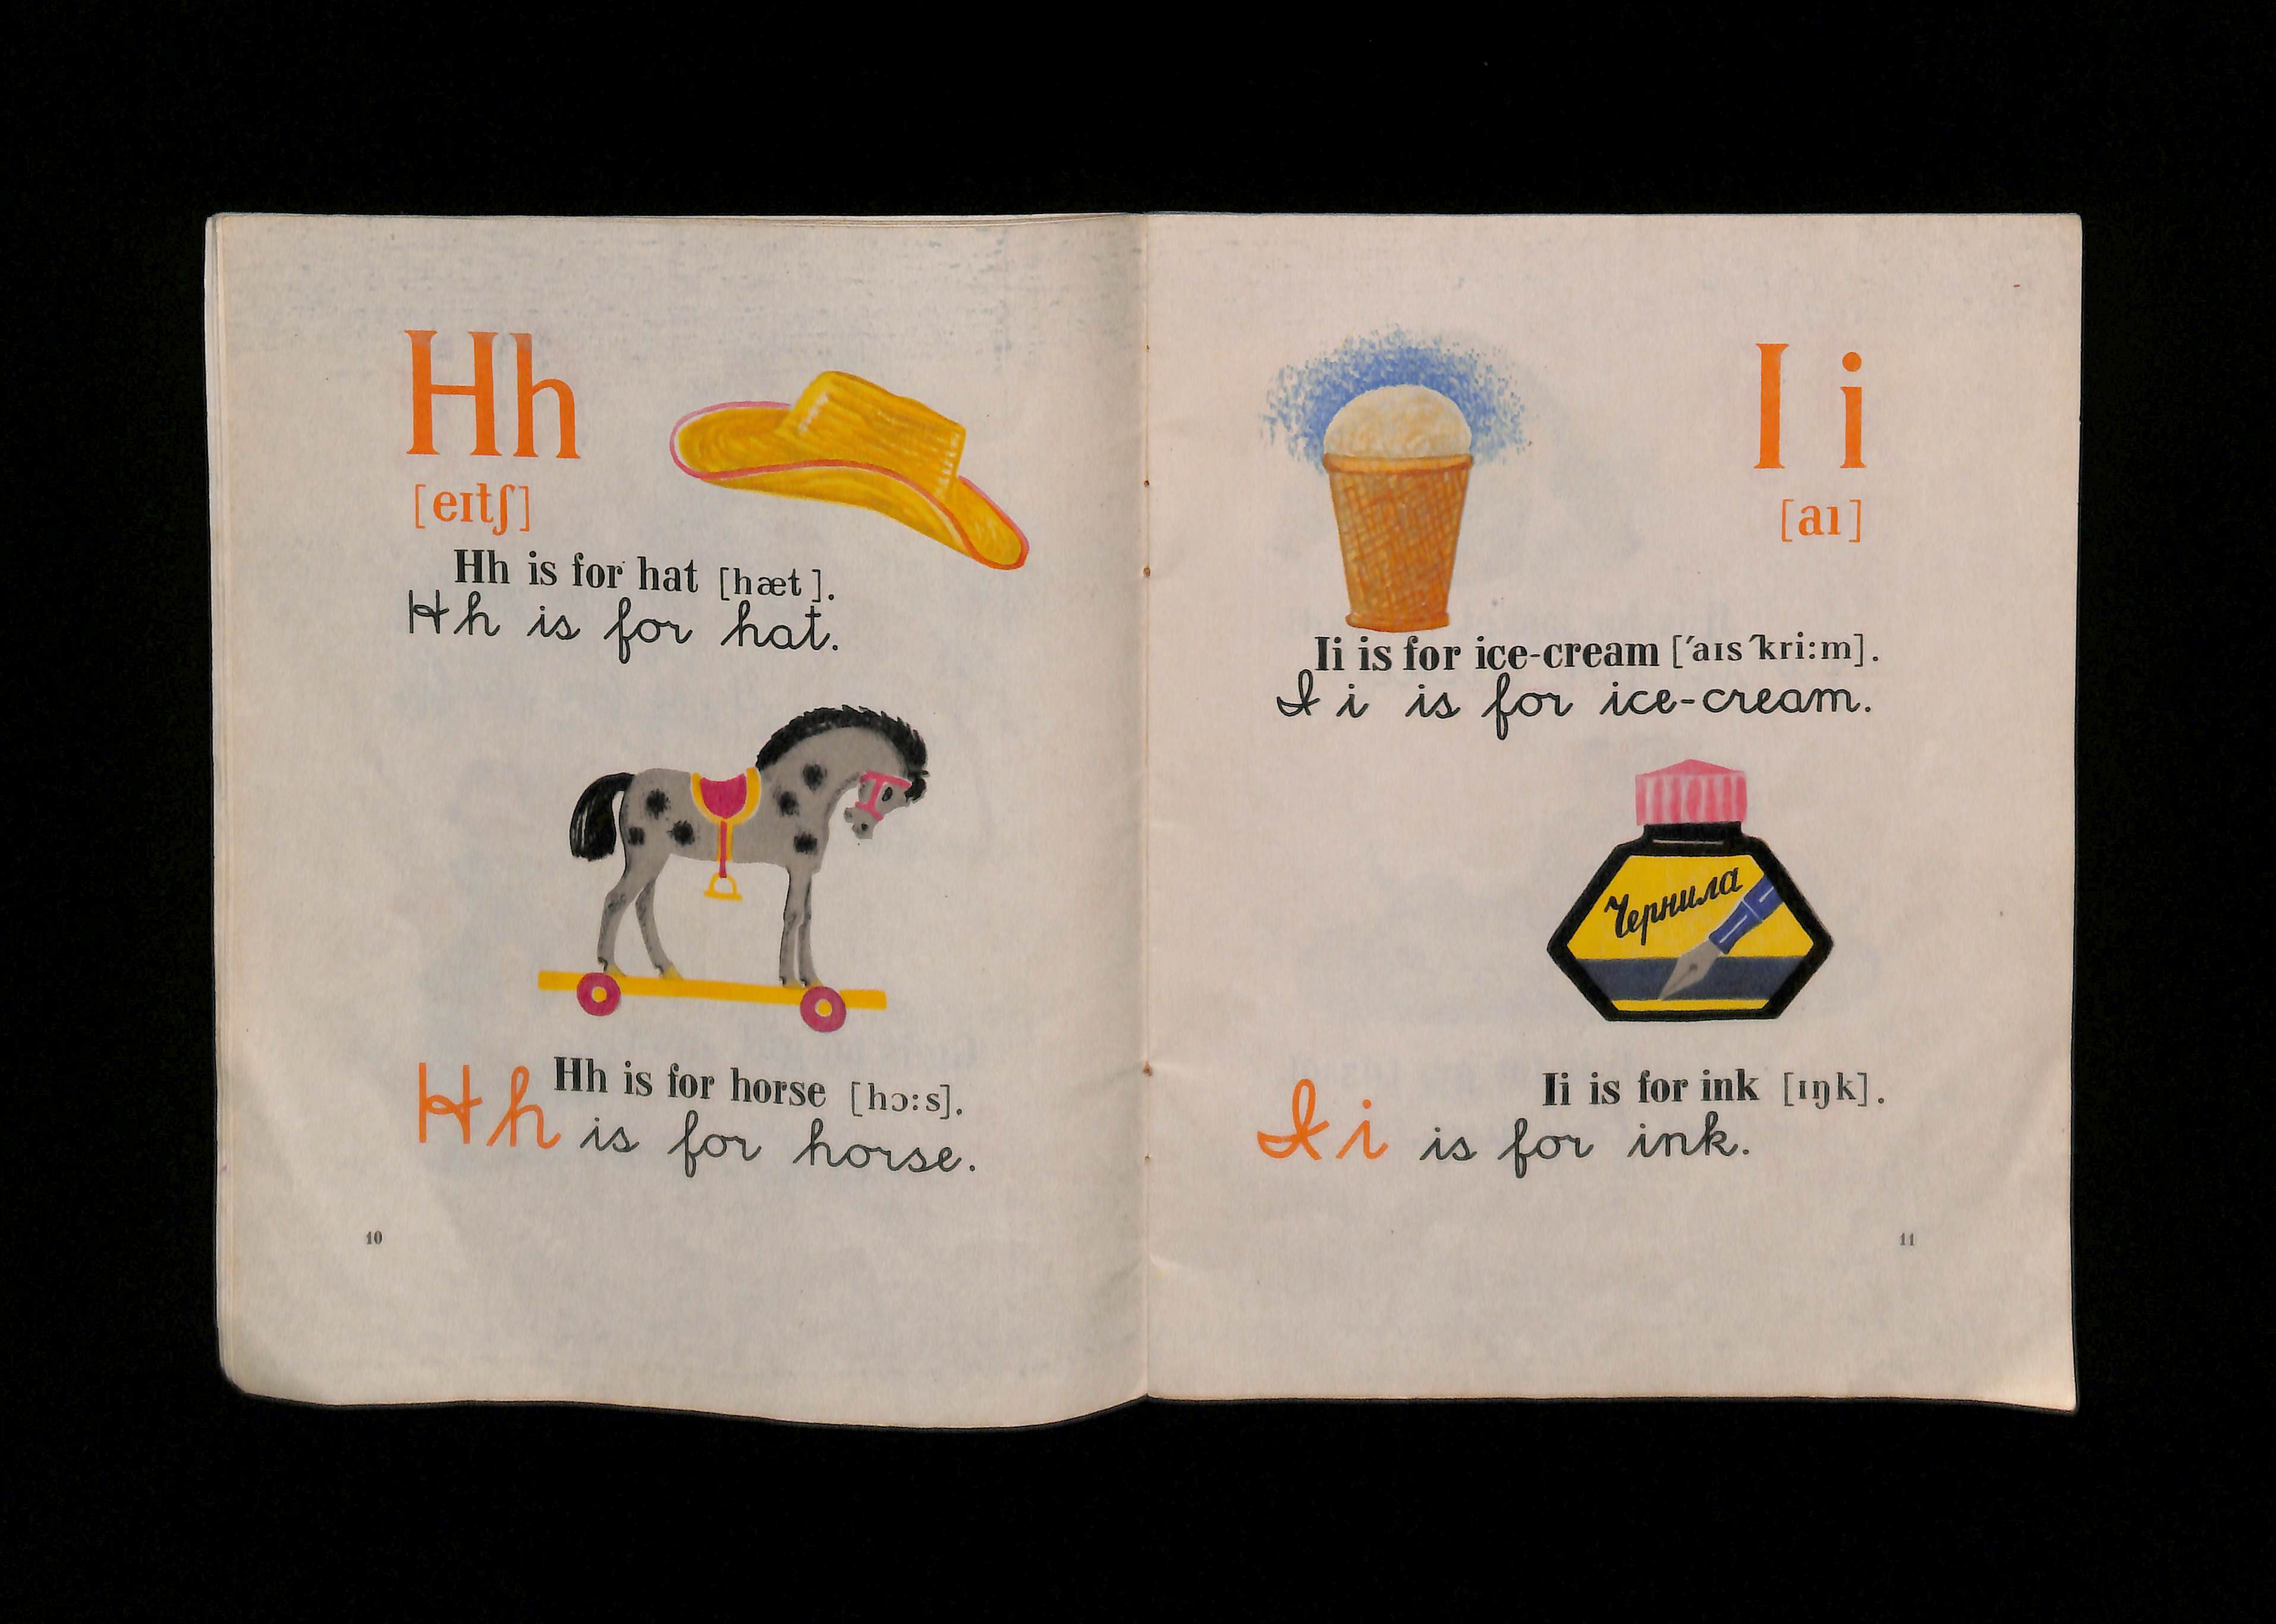 Hh
[eɪtʃ]
Hh is for hat [hæt].
Hh is for hat.
Hh is for horse [hɔ:s].
Hh is for horse.
10
Ii
[aɪ]
Ii is for ice-cream [ˊaɪsˊkri:m].
Ii is for ice-cream.
Чернила
Ii is for ink [ɪŋk].
Ii is for ink.
11